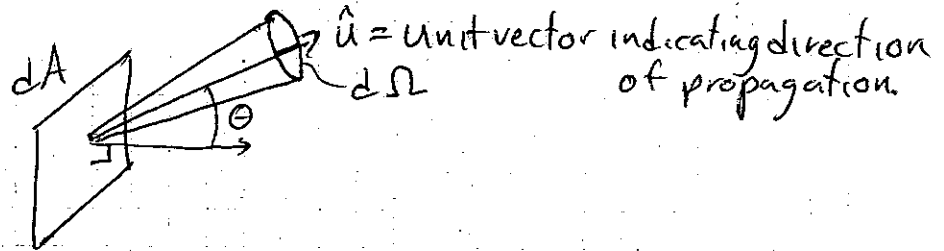 û = unit vector indicating direction
of propagation.
dA
dΩ
θ